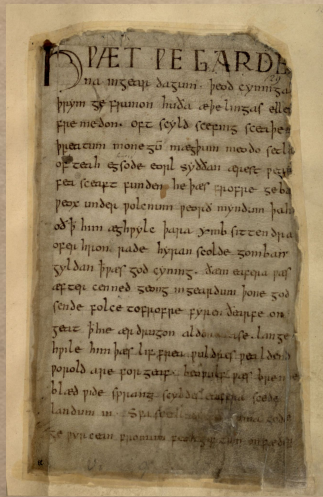 HǷÆT ǷE GARDE
na ingear dagum. þeod cyninga
þrym ge frunon huða æþelingas elle
fremedon. oft scyld scefing sceaþe
þreatum monegū mægþum meodo setla
ofteah egsode eorl syððan ærest ƿe
fea sceaft funden he þæs frofre geba
ƿeox under ƿolcnum ƿeorð myndum þah
oð þ him æghƿylc þara ymb sittendra
ofer hron rade hyran scolde gomban
gyldan þæt ƿæs god cyning. ðæm eafera ƿæs
æfter cenned geong ingeardum þone god
sende folce tofrofre fyren ðearfe on
geat þ hie ær drugon aldor ase. lange
hƿile him þæs lif frea ƿuldres ƿealdend
ƿorold are for geaf. beoƿulf ƿæs breme
blæd ƿide sprang scyldes eafera scede
landum in